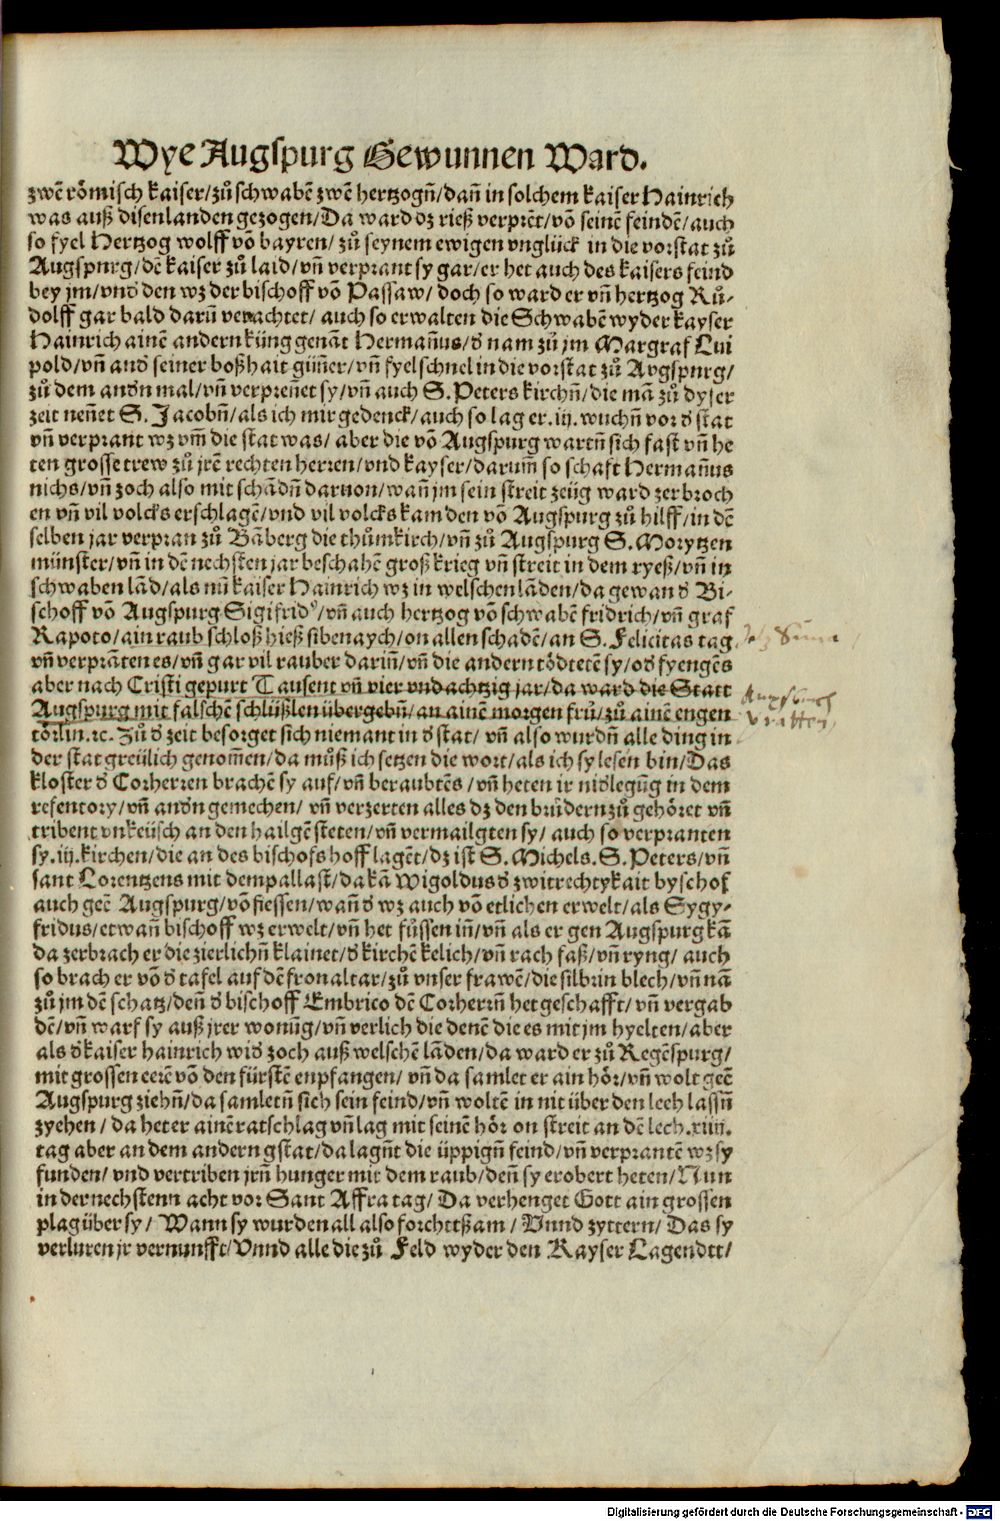 Wye Augspurg Gewunnen Ward.
zwẽ römisch kaiser/zů schwabẽ zwẽ hertzogñ/dañ in solchem kaiser Hainrich
was auß disen landen gezogen/Da ward dz rieß verprẽt/võ seinẽ feindẽ/auch
so fyel Hertzog wolff võ bayren/ zů seynem ewigen vnglück in die vorstat zů
Augspurg/dẽ kaiser zů laid/vñ verprant sy gar/er het auch des kaisers feind
bey jm/vnd den wz der bischoff võ Passaw/ doch so ward er vñ hertzog Rů-
dolff gar bald darũ verachtet/ auch so erwalten die Schwabẽ wyder kayser
Hainrich ainẽ andern küng genãt Hermañus/d nam zů jm Margraf Lui
pold/vñ and seiner boßhait güñer/vñ fyel schnel in die vorstat zů Avgspurg/
zů dem andn mal/vñ verpreñet sy/vñ auch S. Peters kirchñ/die mã zů dyser
zeit neñet S. Jacobñ/als ich mir gedenck/auch so lag er .iij. wuchñ vor d stat
vñ verprant wz vm̃ die stat was/ aber die võ Augspurg wartñ sich fast vñ he
ten grosse trew zů jrẽ rechten herren/vnd kayser/darum̃ so schaft Hermañus
nichs/vñ zoch also mit schãdñ daruon/wañ jm sein streit zeüg ward zerbroch
en vñ vil volcks erschlagẽ/vnd vil volcks kam den võ Augspurg zů hilff/in dẽ
selben jar verpran zů Bãberg die thůmkirch/vñ zů Augspurg S. Morytzen
münster/vñ in dẽ nechsten jar beschahẽ groß krieg vñ streit in dem ryeß/vñ in
schwaben lãd/als nũ kaiser Hainrich wz in welschen lãden/da gewan d Bi-
schoff võ Augspurg Sigifridꝰ/vñ auch hertzog võ schwabẽ fridrich/vñ graf
Rapoto/ain raub schloß hieß sibenaych/on allen schadẽ/an S. Felicitas tag
vñ verprãten es/vñ gar vil rauber dariñ/vñ die andern tödtetẽ sy/od fyengẽs
aber nach Cristi gepurt Tausent vñ vier vnd achtzig jar/da ward die Statt
Augspurg mit falschẽ schlüßlen übergebñ/an ainẽ morgen frů/zů ainẽ engen
Augsburg
verritten
törlin.ꝛc. Zů d zeit besorget sich niemant in d stat/ vñ also wurdñ alle ding in
der stat greülich genom̃en/da můß ich setzen die wort/als ich sy lesen bin/Das
kloster d Corherren brachẽ sy auf/vñ beraubtẽs /vñ heten ir nidlegũg in dem
refentory/vñ andn gemechen/ vñ verzerten alles dz den brüdern zů gehöret vñ
tribent vnkeüsch an den hailgẽ steten/vñ vermailgten sy/ auch so verpranten
sy .iij. kirchen/die an des bischofs hoff lagẽt/dz ist S. Michels. S. Peters/vñ
sant Lorentzens mit dem pallast/da kã Wigoldus d zwitrechtykait byschof
auch geẽ Augspurg/võ fiessen/wañ d wz auch võ etlichen erwelt/als Sygy-
fridus/etwañ bischoff wz erwelt/vñ het füssen iñ/vñ als er gen Augspurg kã
da zerbrach er die zierlichñ klainet/d kirchẽ kelich/vñ rach faß/vñ ryng/ auch
so brach er võ d tafel auf dẽ fronaltar/zů vnser frawẽ/die silbrin blech/vñ nã
zů jm dẽ schatz/deñ d bischoff Embrico dẽ Corherrñ het geschafft/vñ vergab
dẽ/vñ warf sy auß jrer wonũg/vñ verlich die denẽ die es mit jm hyelten/aber
als d kaiser hainrich wid zoch auß welschẽ lãden/da ward er zů Regẽspurg/
mit grossen eerẽ võ den fürstẽ enpfangen/ vñ da samlet er ain hör/vñ wolt geẽ
Augspurg ziehñ/da samletñ sich sein feind/vñ woltẽ in nit über den lech lassñ
zyehen/da het er ainẽ ratschlag vñ lag mit seinẽ hör on streit an dẽ lech .xiiij.
tag aber an dem andern gstat/da lagñt die üppigñ feind/vñ verprantẽ wz sy
funden/ vnd vertriben jrñ hunger mit dem raub/deñ sy erobert heten/Nun
in der nechstenn acht vor Sant Affra tag/ Da verhenget Gott ain grossen
plag über sy/ Wann sy wurden all also forchttßam/ Vnnd zyttern/ Das sy
verluren jr vernunfft/Vnnd alle die zů Feld wyder den Kayser Lagendtt/
Digitalisierung gefördert durch die Deutsche Forschungsgemeinschaft - DFG